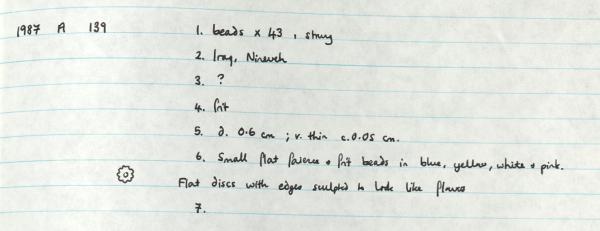 1987 A 139 1. beads x 43, strung
2. Iraq, Nineveh
3. ?
4. frit
5. d. 0.6 cm ; v. thin c.0.05 cm.
6. Small flat faience + frit beads in blue, yellow, white + pink.
Flat discs with edges sculpted to look like flowers
7.